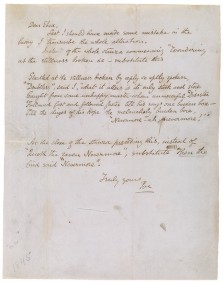 Dear Shea,
Lest I should have made some mistake in the
hurry I transcribe the whole alteration.
Instead of the whole stanza commencing "Wondering
at the stillness broken &c — substitute this
Startled at the stillness broken by reply so aptly spoken,
"Doubtless," said I, "what it utters is its only stock and store
Caught from some unhappy master whom unmerciful Disaster
Followed fast and followed faster till his songs one burden bore —
Till the dirges of his Hope the melancholy burden bore,
"Nevermore — ah nevermore!"
At the close of the stanza preceding this, instead of
Quoth the raven Nevermore", substitute "Then the
bird said "Nevermore".
Truly yours
Poe